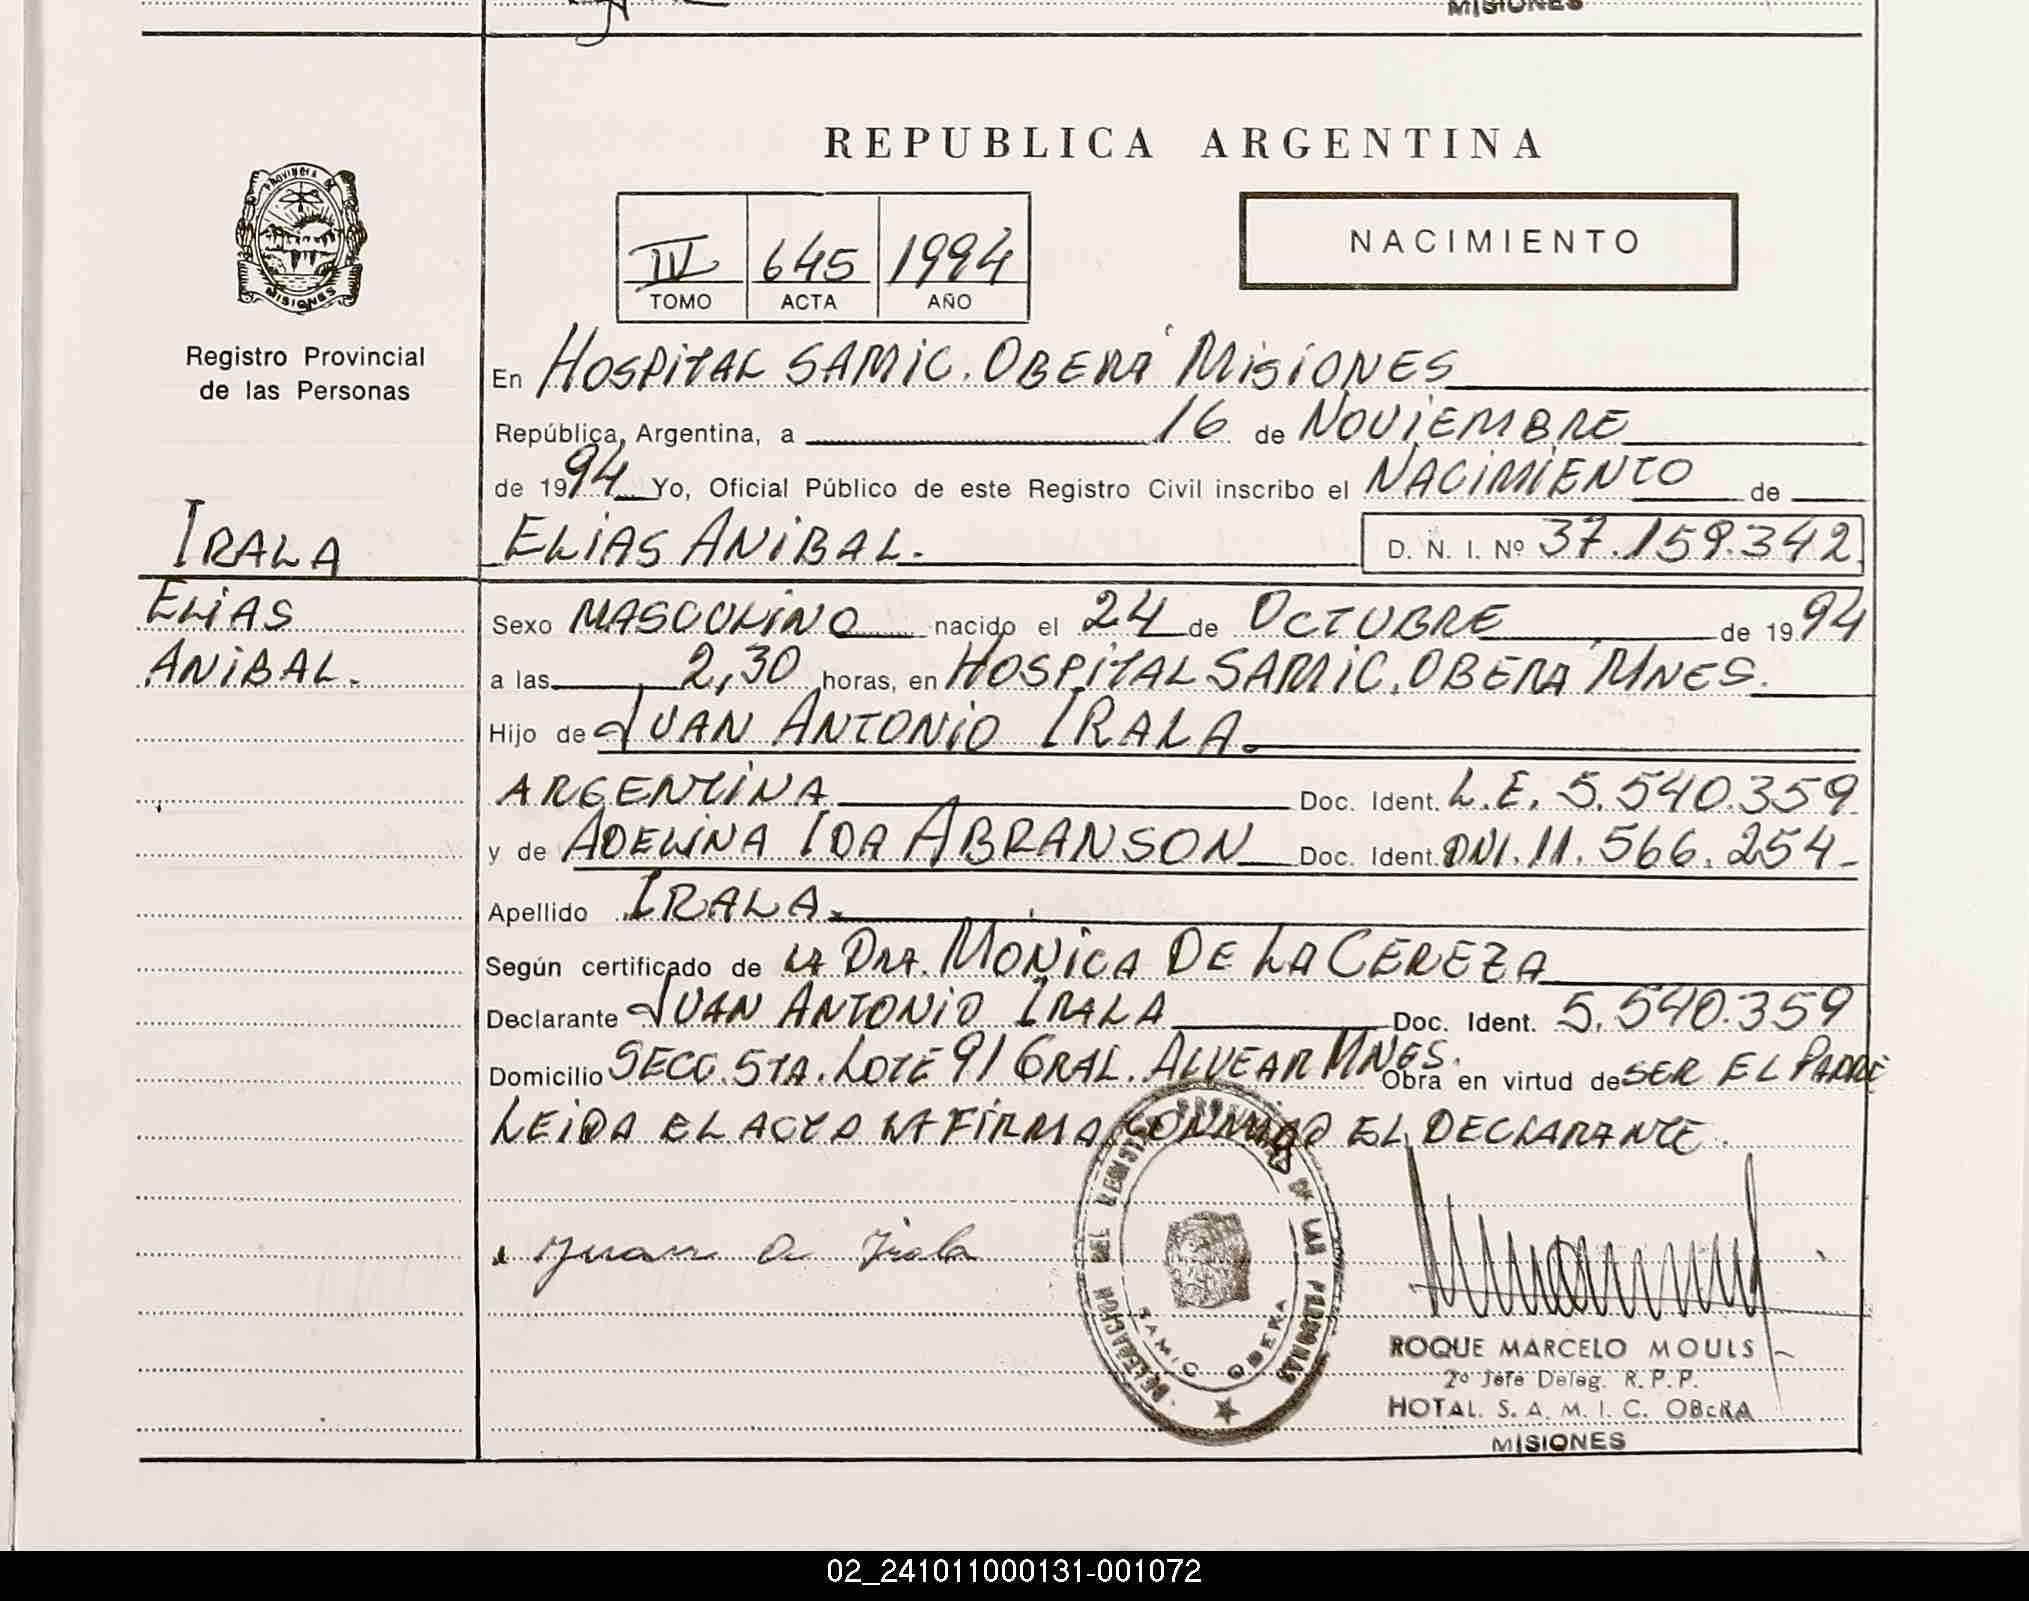 MISIONES
REPUBLICA ARGENTINA
PROVINCIA DE
MISIONES
IV 645 1994
TOMO ACTA AÑO
NACIMIENTO
Registro Provincial
de las Personas
En HOSPITAL SAMIC. OBERÁ MISIONES
República Argentina, a 16 de NOVIEMBRE
de 1994 Yo, Oficial Público de este Registro Civil inscribo el NACIMIENTO de
IRALA
ELIAS ANIBAL. D. N. I. Nº 37.159.342.
ELIAS
ANIBAL.
Sexo MASCULINO nacido el 24 de OCTUBRE de 1994
a las 2,30 horas, en HOSPITAL SAMIC. OBERA MNES.
Hijo de JUAN ANTONIO IRALA.
ARGENTINA Doc. Ident. L.E. 5.540.359
y de ADELINA IDA ABRANSON Doc. Ident. DNI. 11.566.254-
Apellido IRALA.
Según certificado de LA DRA. MONICA DE LA CEREZA
Declarante JUAN ANTONIO IRALA Doc. Ident. 5.540.359
Domicilio SECC. 5TA. LOTE 91 GRAL. ALVEAR MNES. Obra en virtud de SER EL PADRE
LEIDA EL ACTA LA FIRMA CONMIGO EL DECLARANTE.
Juan A Irala
DELEGACION DEL REGISTRO DE LAS PERSONAS
SAMIC OBERA
ROQUE MARCELO MOULS
2º Jefe Deleg. R. P. P.
HOTAL. S. A. M. I. C. OBERA
MISIONES
02_241011000131-001072